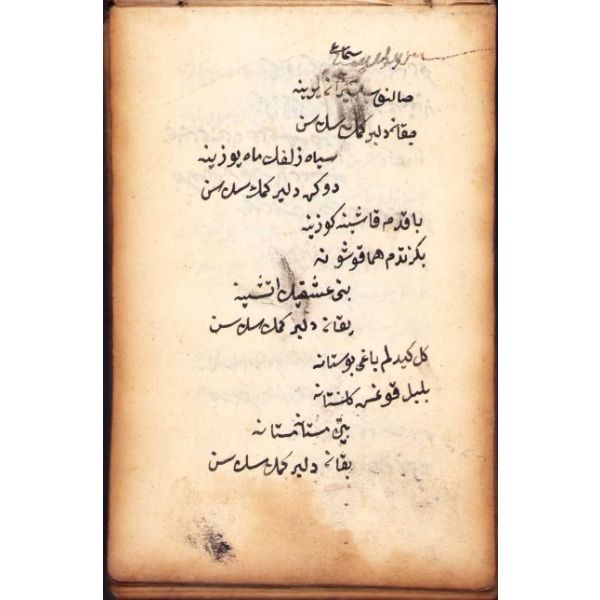 سماع
صالنوب یوینه
چقان دلبر کمك سن سن
سیاه زلفك ماه یوزینه
دوکن دلبر کمك سن سن
باقدم قاشینه کوزینه
بکزتدم هما قوشونه
بنی عشقك اتشینه
یقان دلبر کمك سن سن
کل کیدلم باغی بوستانه
بلبل قونمش کلستانه
بنی مستانه مستانه
یقان دلبر کمك سن سن